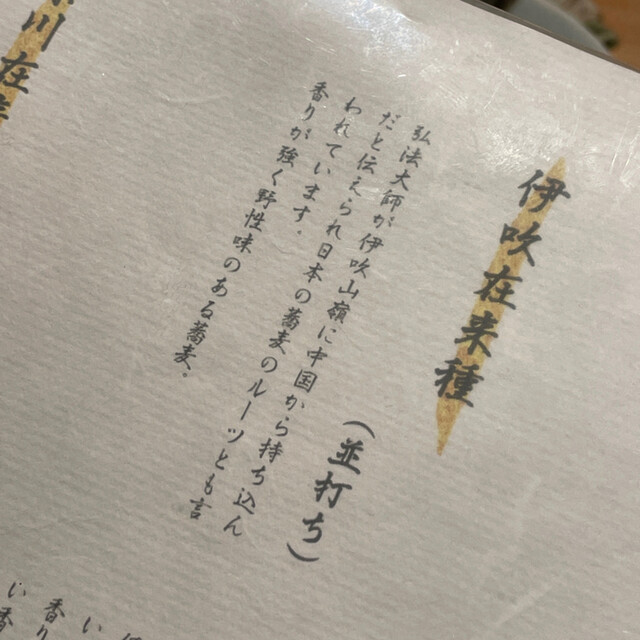 伊吹在来種
(並打ち)
弘法大師が伊吹山嶺に中国から持ち込ん
だと伝えられ日本の蕎麦のルーツとも言
われています。
香りが強く野性味のある蕎麦。
川在